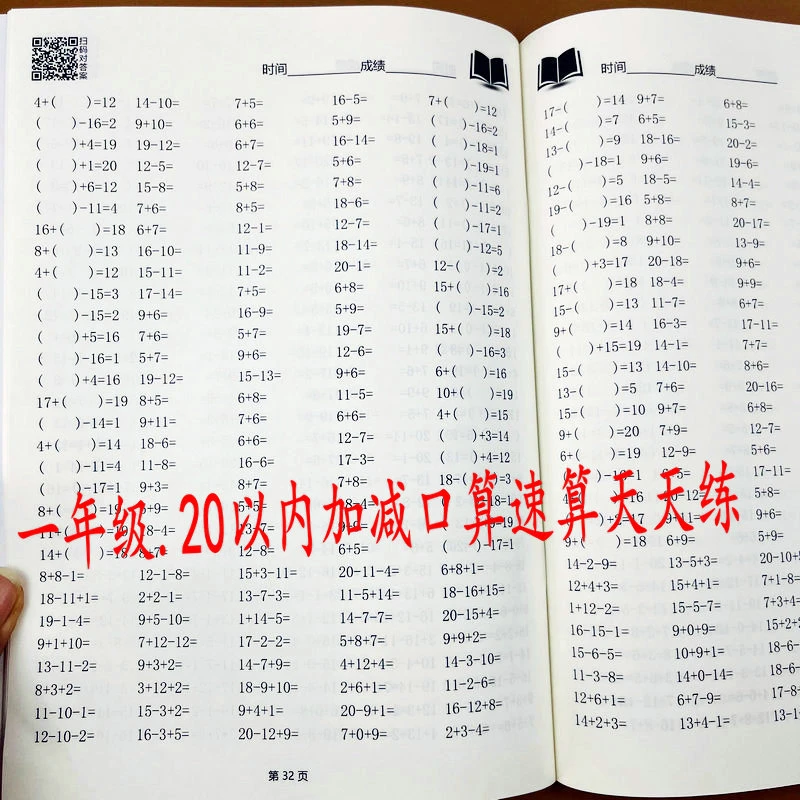 扫码对答案
时间 成绩
4+( )=12 14-10= 7+5= 16-5= 7+( )=12
( )-16=2 9+10= 6+6= 5+9= ( )-16=2
( )+4=19 19-12= 6+7= 16-14= ( )-18=1
( )+1=20 12-5= 12-7= 5+6= ( )-19=1
( )+6=12 15-8= 5+8= 7+8= ( )-11=6
( )-11=4 7+6= 8+5= 18-6= ( )-11=2
16+( )=18 6+7= 12-1= 12-7= ( )-17=1
8+( )=13 16-10= 11-9= 18-14= ( )-12=5
4+( )=12 15-11= 11-2= 20-1= 12-( )=2
( )-15=3 17-14= 7+5= 6+8= 15+( )=16
( )-15=2 9+6= 16-9= 5+9= ( )-15=2
( )+5=16 7+6= 5+7= 19-7= 15+( )=18
( )-16=1 5+7= 9+6= 12-6= ( )-16=3
( )+4=16 19-12= 15-13= 9+6= 6+( )=16
17+( )=19 8+5= 6+8= 11-5= 10+( )=19
( )-14=1 9+11= 7+6= 6+6= 4+( )=15
4+( )=14 18-6= 6+6= 12-7= ( )+3=14
( )-11=4 11-8= 16-6= 17-3= ( )+4=12
( )-17=1 9+3= 8+7= 7+8= 18-( )=3
一年级.20以内加减口算速算天天练
14+( )=18 12-8= 6+5= ( )-17=1
8+8-1= 12-1-8= 15+3-11= 20-11-4= 6+8+1=
18-11+1= 2+2-1= 13-7-3= 11-5+14= 18-16+15=
19-1-4= 9+5-10= 1+14-5= 14-7-7= 20-15+4=
9+1+10= 7+12-12= 17-2-2= 5+8+7= 9+9+2=
13-11-2= 9+3+2= 14-7+9= 4+12+4= 14-3-10=
8+3+2= 3+12+2= 18-9+10= 2+6+1= 11-2-6=
11-10-1= 15-3+2= 9+4+1= 20-9+1= 16-12+8=
12-10-2= 16-3+5= 20-12+9= 7+0+9= 2+3-4=
第 32 页
时间 成绩
17-( )=14 9+7= 6+8=
14-( )=7 6+5= 15-3=
13-( )=9 18-16= 20-2=
( )-18=1 9+6= 19-6=
12-( )=5 18-5= 14-4=
19-( )=16 5+8= 8+7=
( )-19=1 8+8= 20-17=
18-( )=8 9+10= 13-9=
( )+3=17 20-18= 9+6=
17+( )=18 18-4= 9+9=
15-( )=13 11-7= 6+7=
9+( )=14 16-3= 17-11=
( )+15=19 14-1= 7+7=
15-( )=13 14-10= 8+6=
13-( )=5 7+6= 20-16=
15-( )=10 9+7= 6+8=
9+( )=20 7+9= 12-7=
6+( )=19 12-9= 5+6=
17-11=
9+6=
9+( )=18 6+9= 9+9=
14-2-9= 13-5+3= 20-10+5
12+4+3= 15+4+1= 7+1-8=
1+12-2= 15-5-7= 7+3+4=
16-15-1= 9+0+9= 15+2+2
15-6-5= 10+9+1= 18-16-
11-3-8= 14+0-14= 18-6-
12+6+1= 6+7-9= 17-8-
14+2+3= 13+4-1= 13-1-